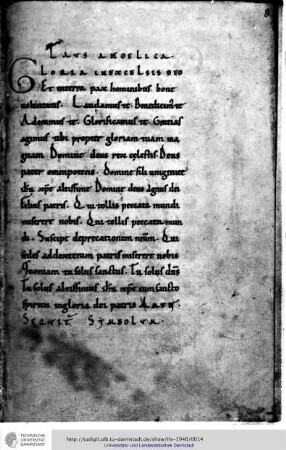 8
Laus angelica.
Gloria inexcelsis deo
Et interra pax hominibus bone
uoluntatis. Laudamus te. Benedicim' te
Adoramus te. Glorificamus te. Gratias
agimus tibi propter gloriam tuam ma
gnam Domine deus rex celestis. Deus
pater omnipotens. Domine fili unigenite
ihu xpe altissime Domine deus agnus dei
filius patris. Qui tollis peccata mundi
miserere nobis. Qui tollis peccata mun
di. Suscipe deprecationem nram. Qui
sedes addexteram patris miserere nobis
Quoniam tu solus sanctus. Tu solus dns
Tu solus altissimus ihu xpe cum sancto
spiritu ingloria dei patris Amen.
Sequit Symbolum.
TECHNISCHE
UNIVERSITÄT
DARMSTADT
http://tudigit.ulb.tu-darmstadt.de/show/Hs-1946/0014
Universitäts- und Landesbibliothek Darmstadt